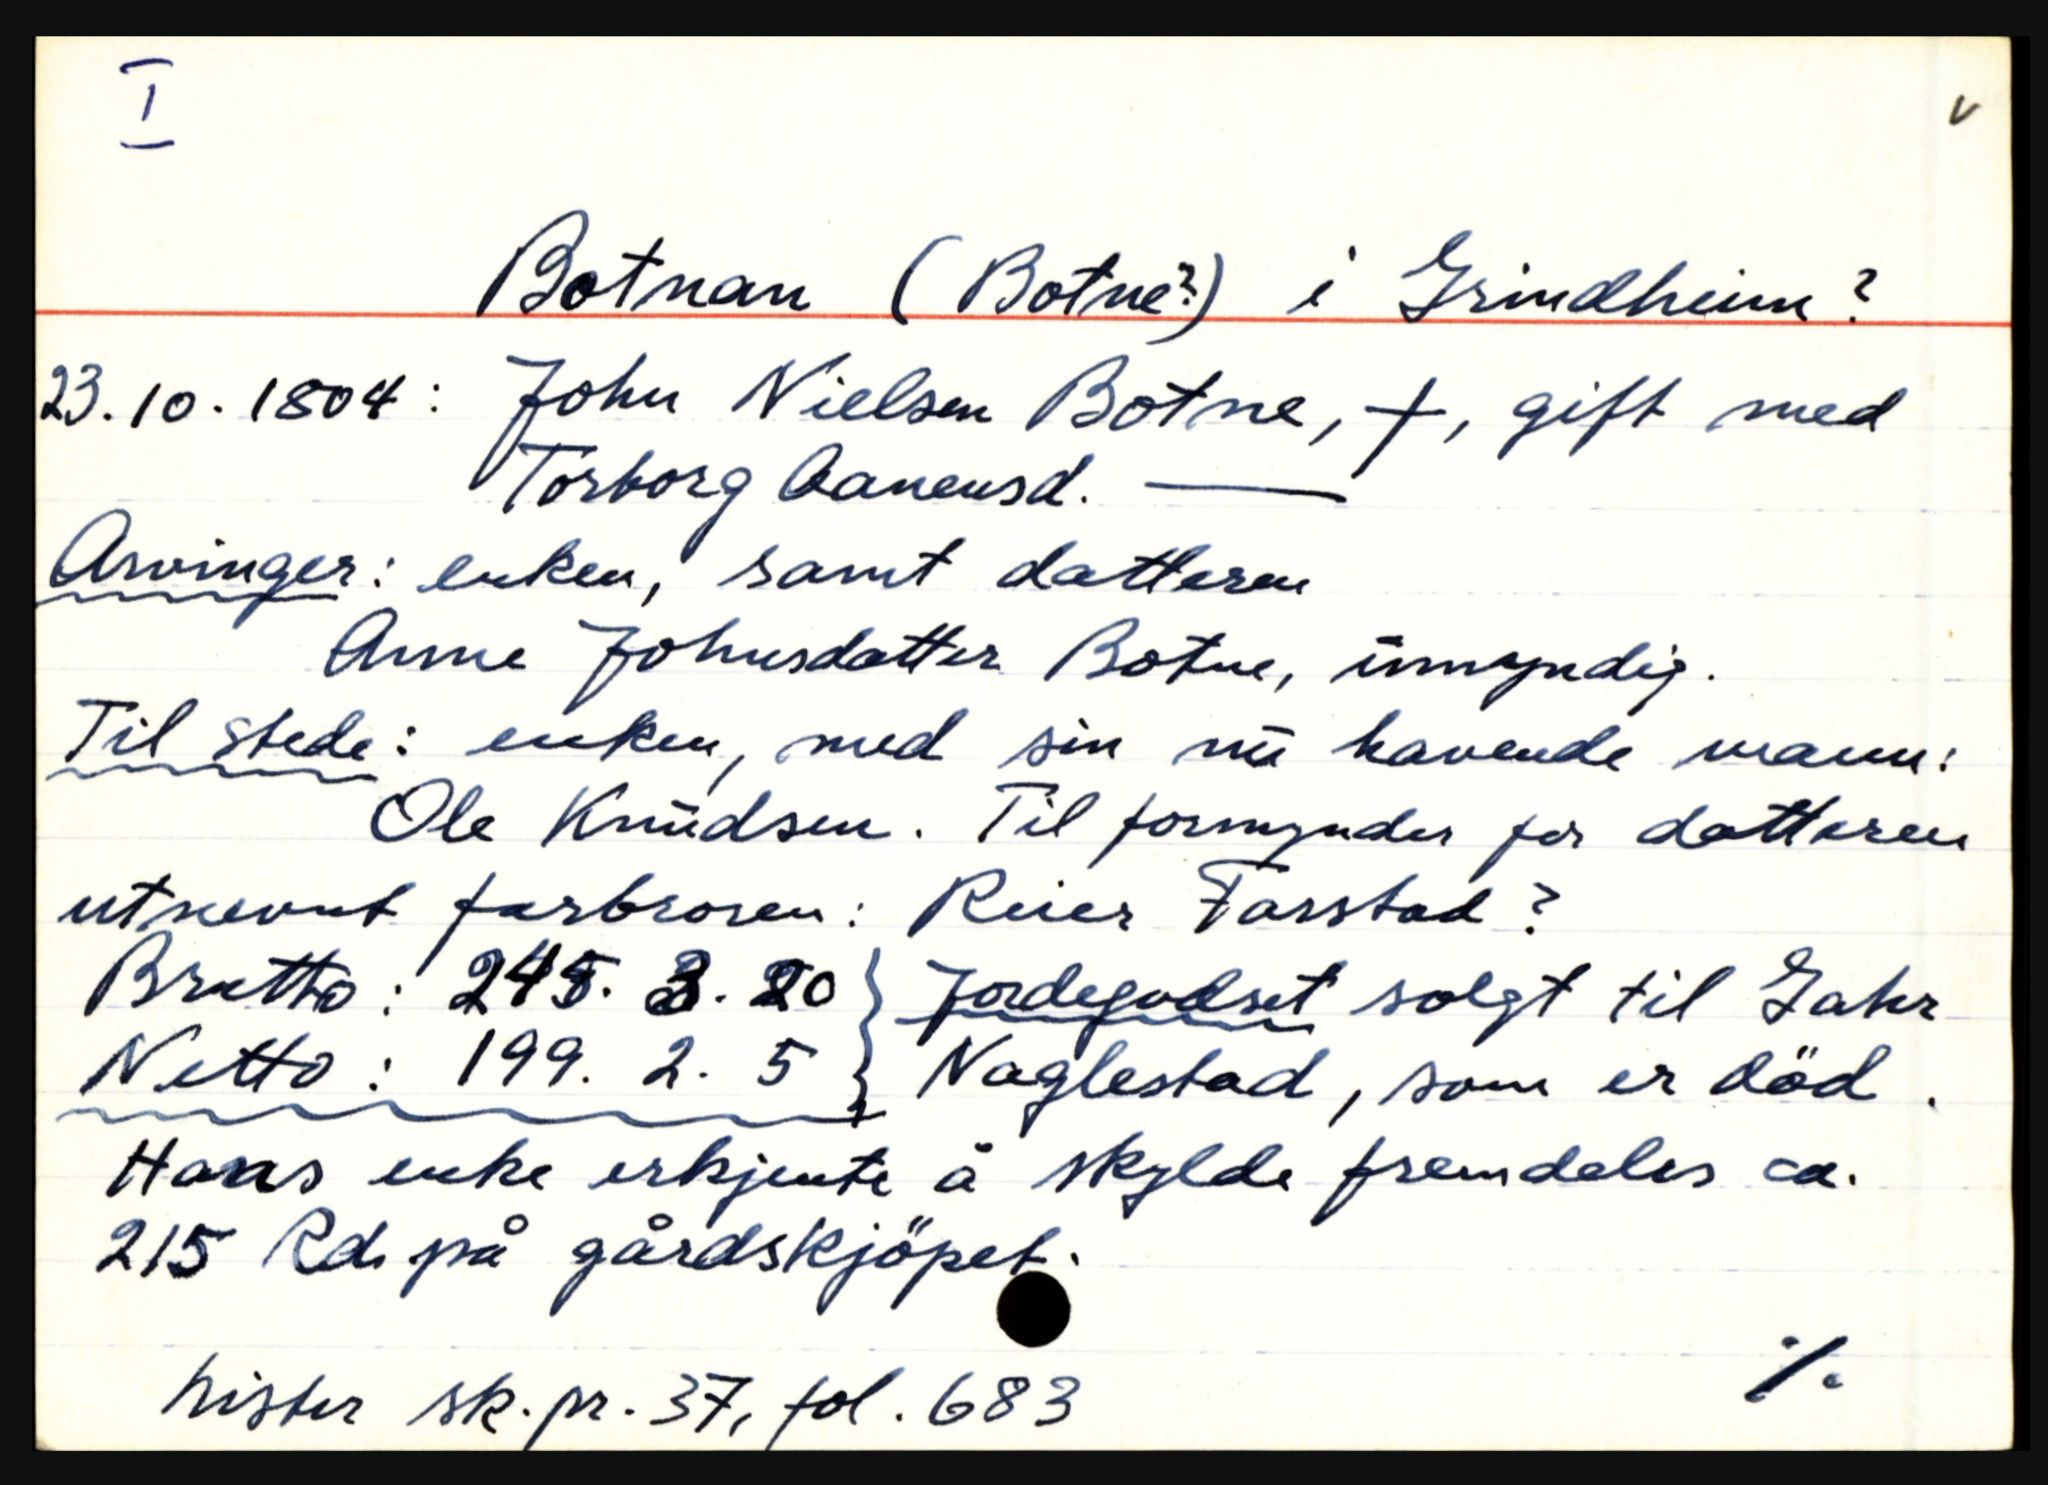 I
v
Botnan (Botne?) i Grindheim?
23.10.1804: John Nielsen Botne, †, gift med
Torborg Aanensd. —
Arvinger: enken, samt datteren
Anne Johnsdatter Botne, umyndig.
Til stede: enken, med sin nu havende mann:
Ole Knudsen. Til formynder for datteren
utnevnt farbroren: Reier Farstad?
Brutto: 245. 3. 20 } Jordegodset solgt til Jahr
Netto: 199. 2. 5 } Naglestad, som er död.
Hans enke erkjente å skylde fremdeles ca.
215 Rd. på gårdskjöpet.
Lister sk.pr. 37, fol. 683
./.